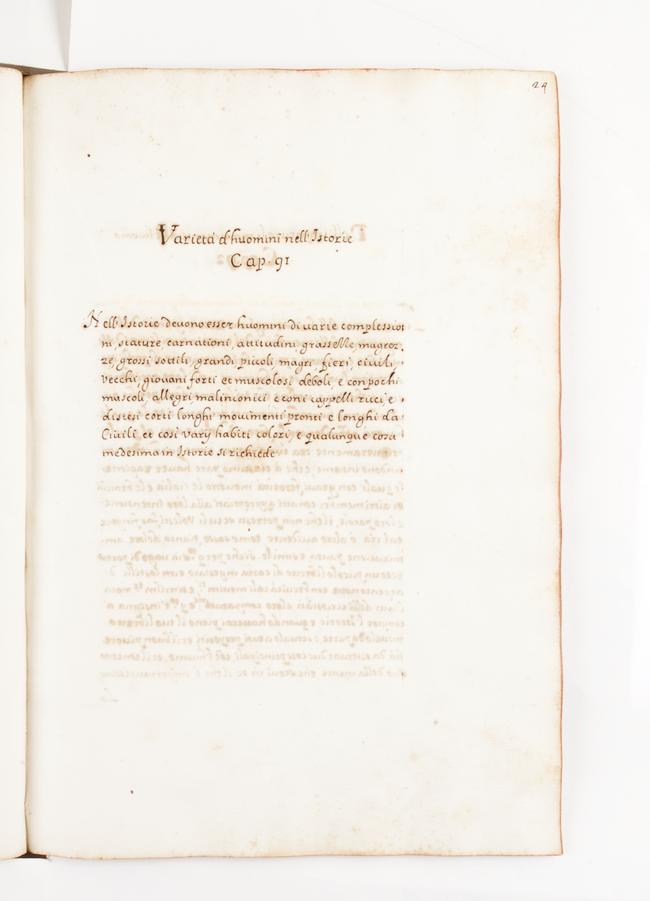 24
Varietà d'huomini nell'Istorie
Cap. 91
Nell'Istorie devono esser huomini di varie complessio
ni, stature, carnationi, attitudini, grassezze, magrez
ze, grossi sottili, grandi piccoli, magri, fieri, civili,
vecchi, giovani forti et muscolosi deboli, e con pochi
muscoli, allegri, malinconici e con i cappelli ricci e
distesi corti longhi movimenti pronti e longhi da
Civili et così varij habiti colori, e qualunque cosa
medesima in Istorie si richiede